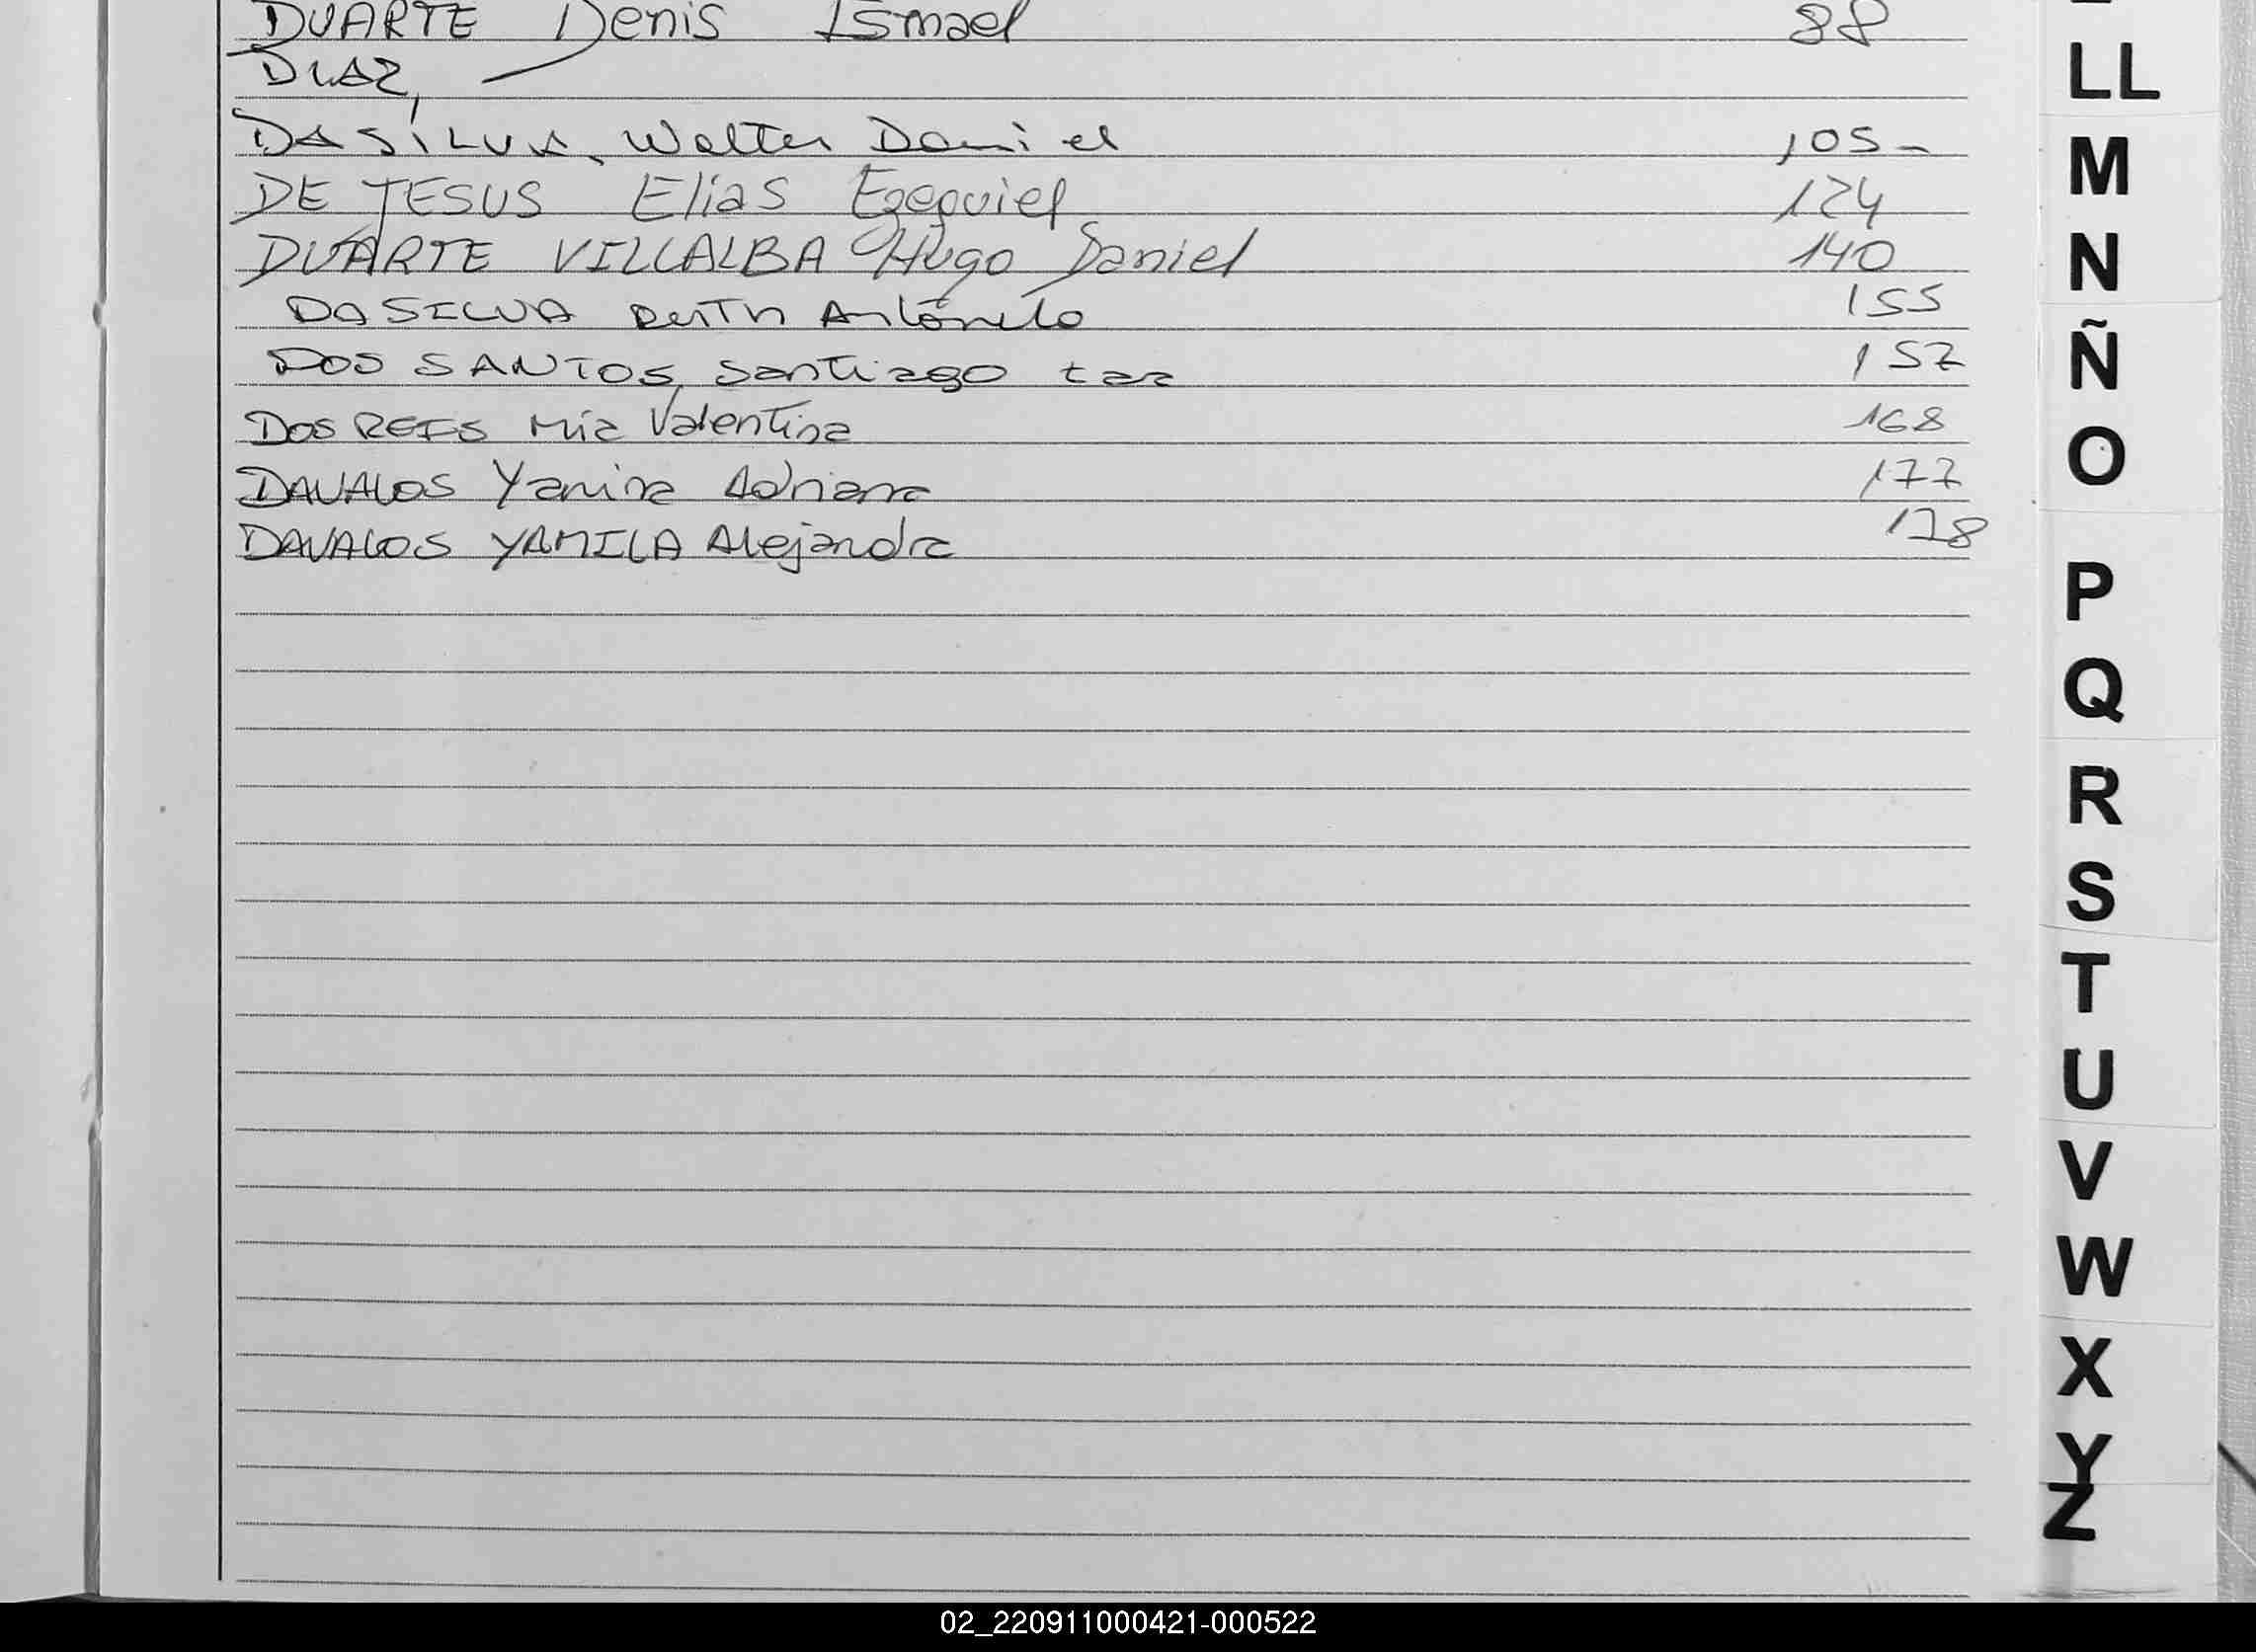 DUARTE Denis Ismael 88
DIAZ,
DASILVA, Walter Daniel 105-
DE JESUS Elias Ezequiel 124
DUARTE VILLALBA Hugo Daniel 140
DASILVA RUTH 155
DOS SANTOS, Santiago 157
DOS REIS Mia Valentina 168
DAVALOS Yanina Adriana 177
DAVALOS YAMILA Alejandra 178
LL
M
N
Ñ
O
P
Q
R
S
T
U
V
W
X
Y
Z
02_220911000421-000522